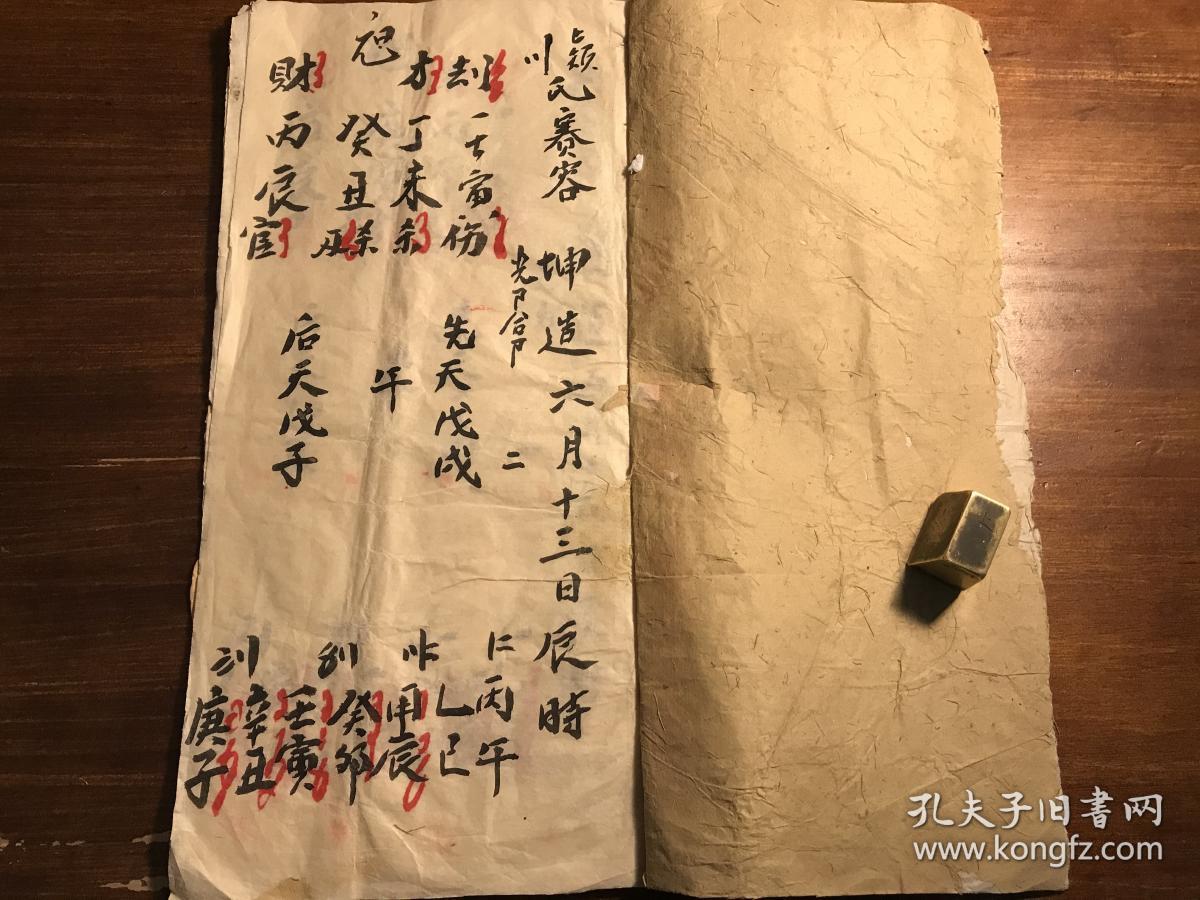 川
氏赛容
坤造六月十三日辰時
二
劫
壬寅
伤
先天戊戌
才
丁未
杀
午
癸丑
杀
財
丙辰
官
后天戊子
丙午
乙巳
甲辰
癸卯
壬寅
辛丑
庚子
孔夫子旧書网
www.kongfz.com